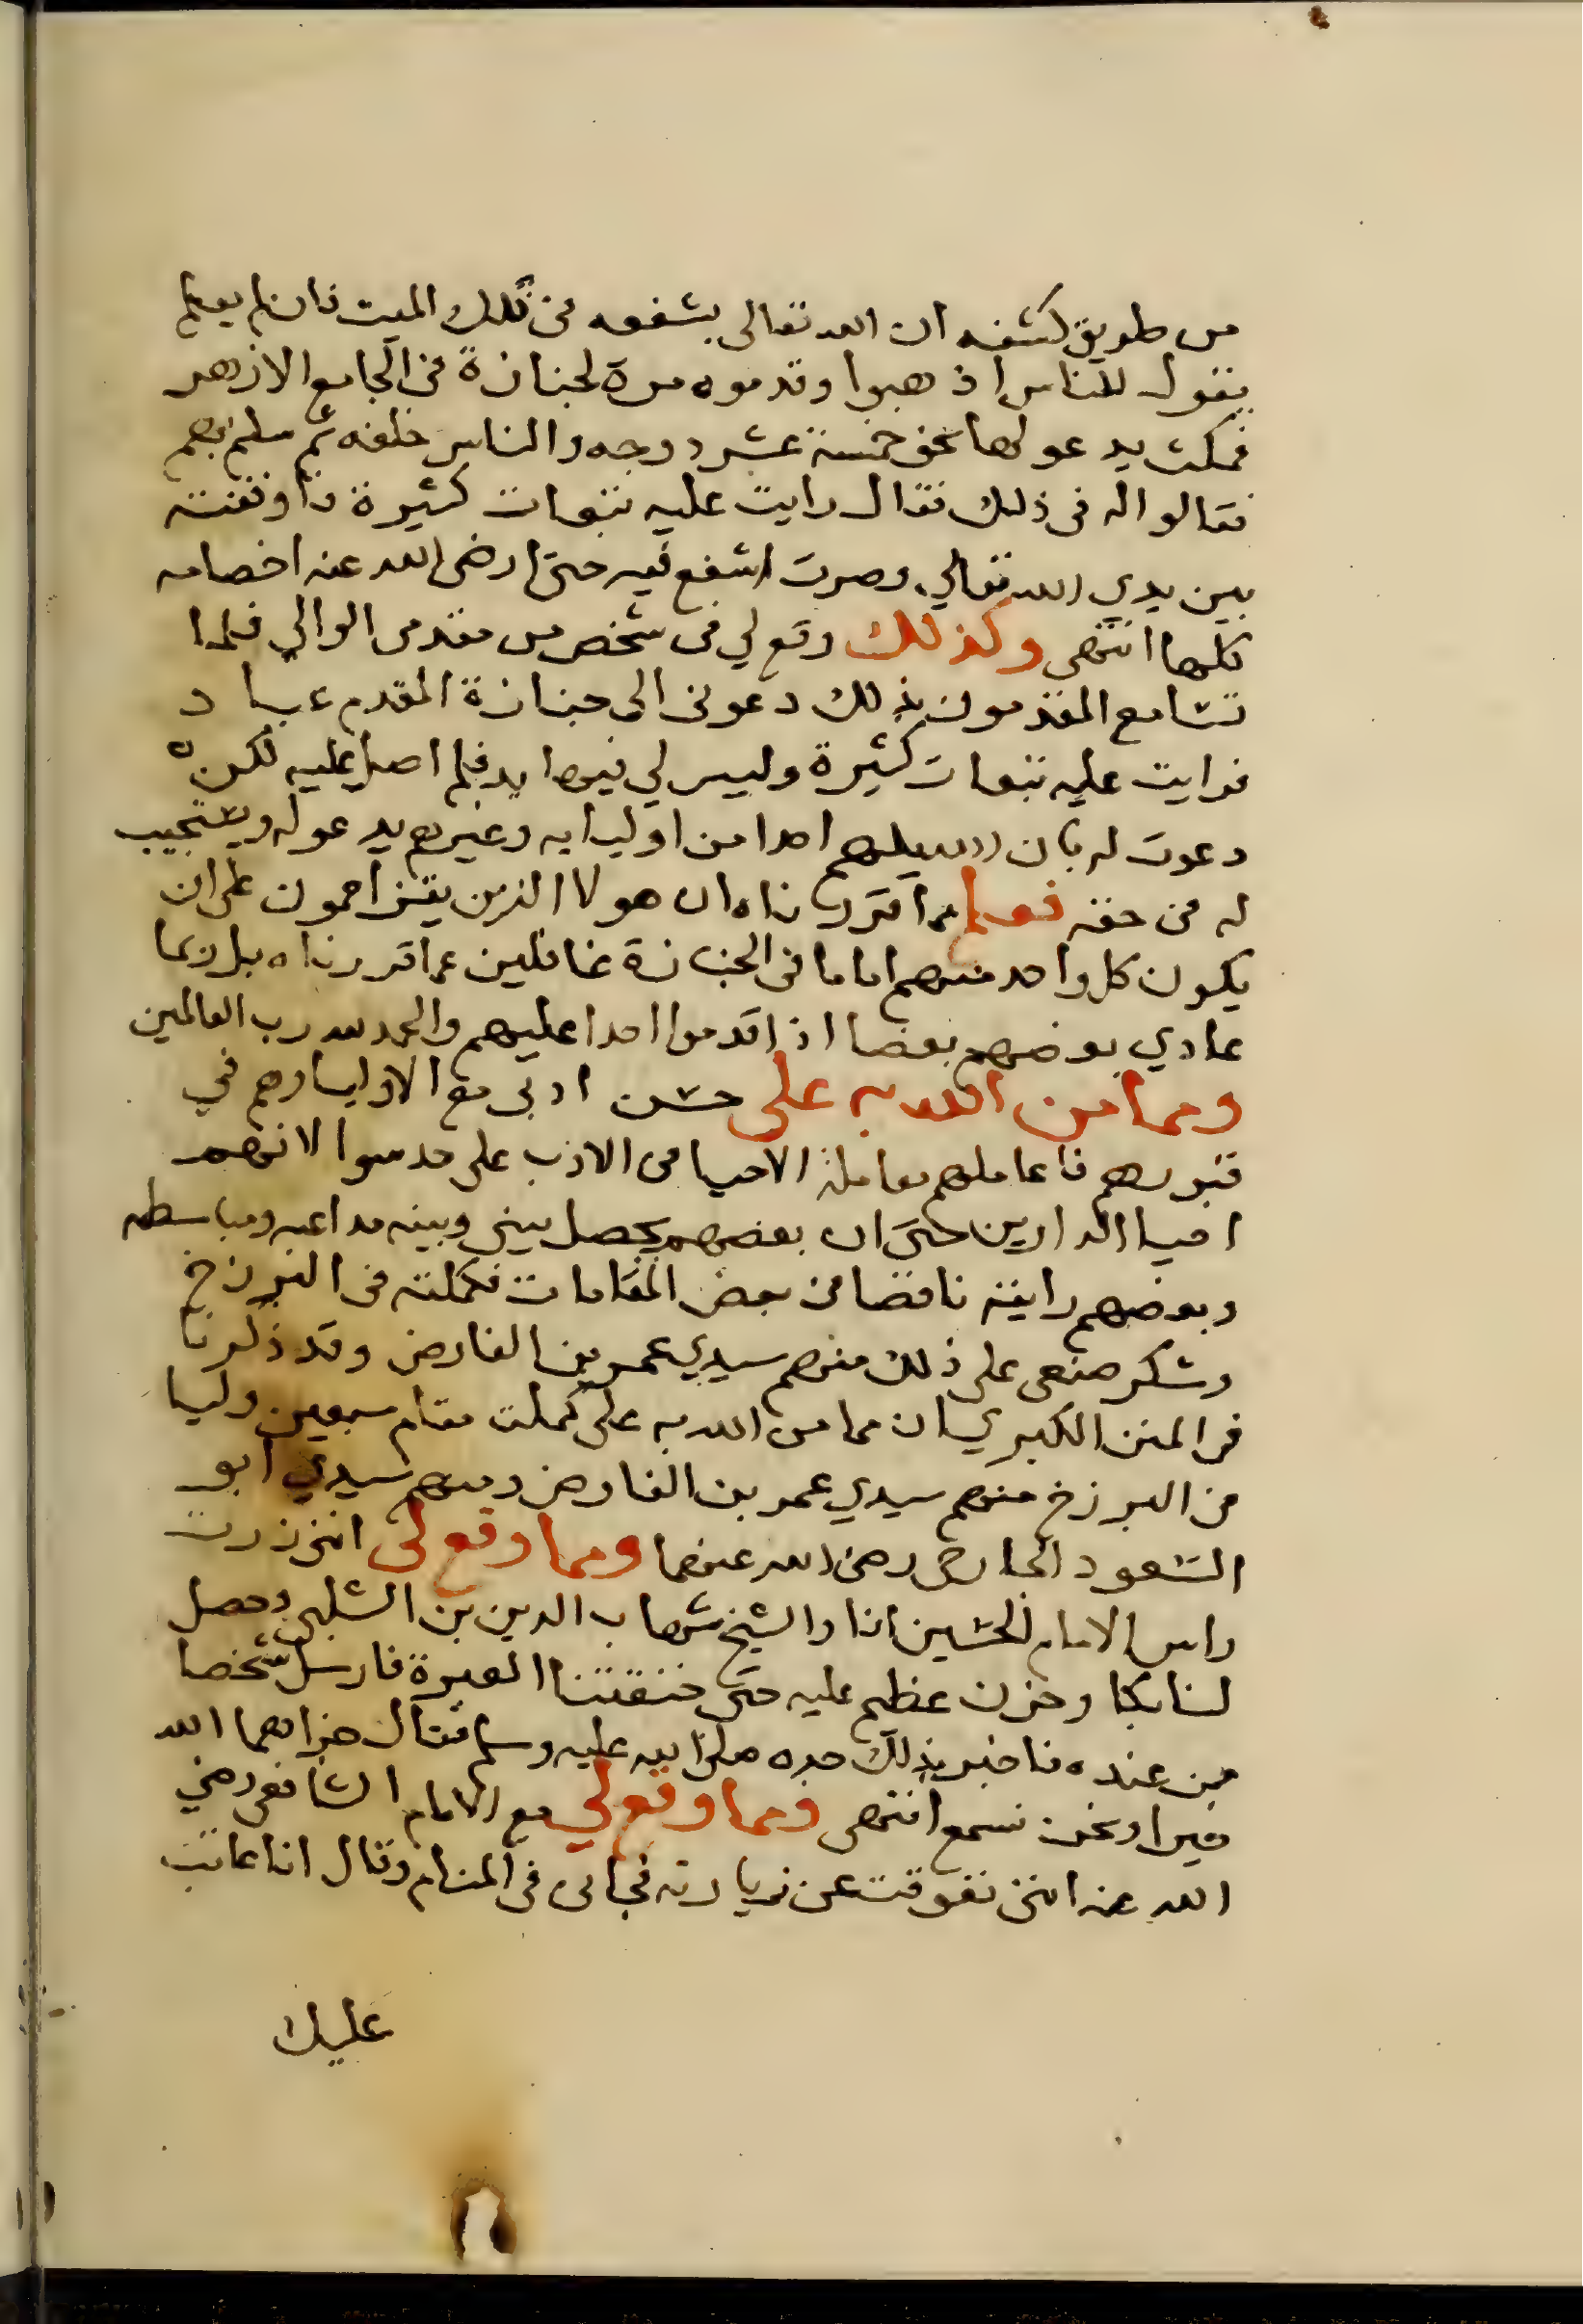 من طريق كشفه ان الله تعالى يشفعه في ذلك الميت فان لم يعلم
يقول للناس اذهبوا وقدموه مرة لجنازة في الجامع الازهر
فمكث يدعو لها نحو خمسة عشر درجه والناس خلفه ثم سلم بهم
فقالوا له في ذلك فقال رايت عليه تبعات كثيرة فاوقفته
بين يدي الله تعالي وصرت اشفع فيه حتى ارضى الله عنه اخصامه
كلها انتهى وكذلك وقع لي في شخص من مقدمى الوالي فلما
تشامع المقدمون بذلك دعوني الى جنازة المقدم عباد
فرايت عليه تبعات كثيرة وليس لي فيها يد فلم اصل عليه لكن
دعوت له بان الله يلهم احدا من اوليايه وغيرهم يدعو له ويستجيب
له في حقه فعلم مما قررناه ان هولا الذين يتزاحمون على ان
يكون كل واحد منهم اماما في الجنازة غافلين عما قررناه بل ربما
عادي بعضهم بعضا اذا قدموا احدا عليهم والحمد لله رب العالمين
ومما من الله به على حسن ادبى مع الاوليا وهم في
قبورهم فاعاملهم معاملة الاحيا في الادب على حد سوا لانهم
احيا الدارين حتى ان بعضهم يحصل بيني وبينه مداعبه ومباسطه
وبعضهم رايته ناقصا في بعض المقامات فكملته في البرزخ
وشكر صنعى على ذلك منهم سيدي عمر بن الفارض وقد ذكرنا
في المنن الكبري ان مما من الله به على كملت مقام سبعين وليا
في البرزخ منهم سيدي عمر بن الفارض ومنهم سيدي ابو
السعود الجارحى رضى الله عنهما ومما وقع لى انني زرت
راس الامام الحسين انا والشيخ شهاب الدين بن الشلبى وحصل
لنا بكا وحزن عظيم عليه حتى خنقتنا العبرة فارسل شخصا
من عنده فاخبر بذلك جده صلى الله عليه وسلم فقال جزاهما الله
خيرا ونحن نسمع انتهى ومما وقع لي مع الامام الشافعى رضي
الله عنه انني تعوقت عن زيارته فجانى في المنام وقال انا عاتب
عليك